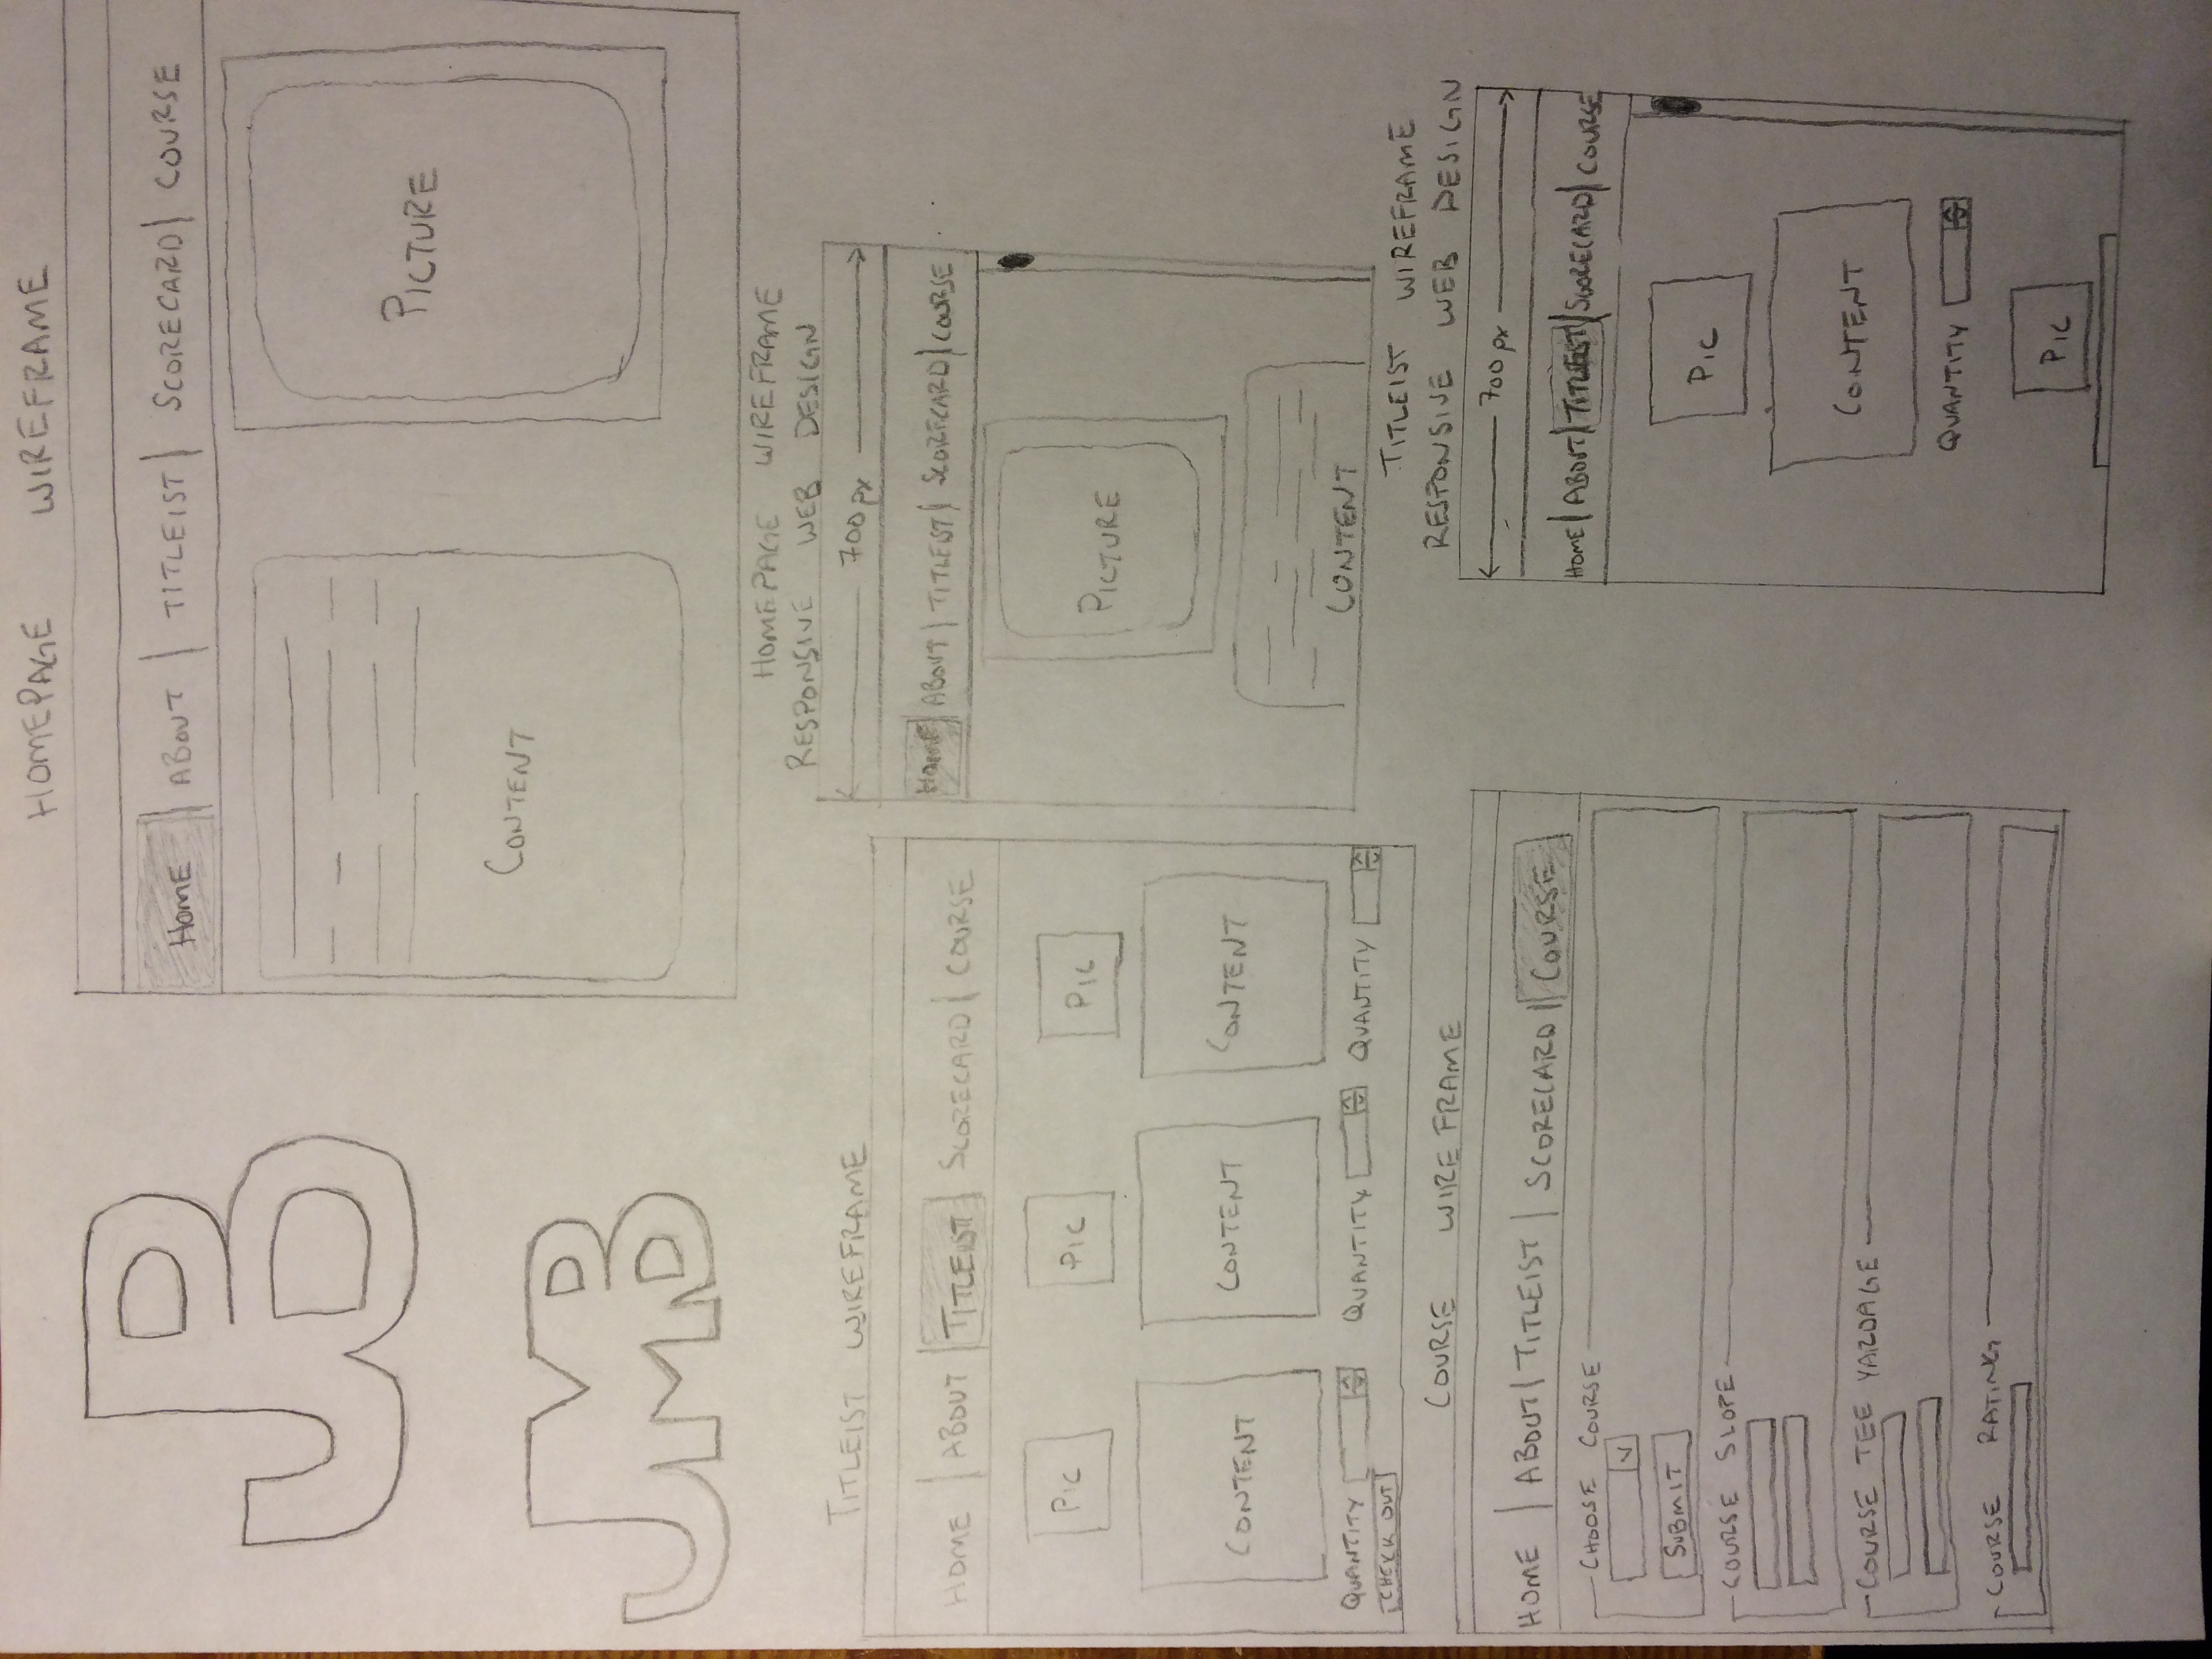 HOMEPAGE WIREFRAME
HOME | ABOUT | TITLEIST | SCORECARD | COURSE
CONTENT
PICTURE
JB
JMB
TITLEIST WIREFRAME
HOME | ABOUT | TITLEIST | SCORECARD | COURSE
PIC PIC PIC
CONTENT CONTENT CONTENT
QUANTITY QUANTITY QUANTITY
CHEKK OUT
HOMEPAGE WIREFRAME
RESPONSIVE WEB DESIGN
700px
HOME | ABOUT | TITLEIST | SCORECARD | COURSE
PICTURE
CONTENT
COURSE WIRE FRAME
HOME | ABOUT | TITLEIST | SCORECARD | COURSE
CHOOSE COURSE
SUBMIT
COURSE SLOPE
COURSE TEE YARDAGE
COURSE RATING
TITLEIST WIREFRAME
RESPONSIVE WEB DESIGN
700px
HOME | ABOUT | TITLEIST | SCORECARD | COURSE
PIC
CONTENT
QUANTITY
PIC